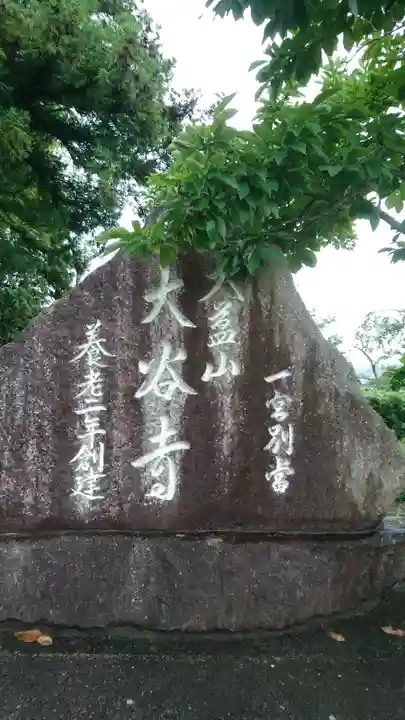 一宮別當
益山
大谷寺
養老二年創建